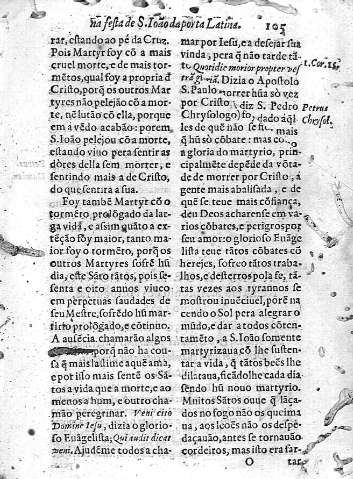 na festa de S. Ioão da porta Latina. 105
rar, estando ao pé da Cruz.
Pois Martyr foy cõ a mais
cruel morte, e de mais tor-
mẽtos, qual foy a propria d̃
Cristo, porq̃ os outros Mar
tyres não pelejão cõ a mor-
te, nẽ lutão cõ ella, porque
em a vẽdo acabão: porem
S. Ioão pelejou cõ a morte,
estando viuo pera sentir as
dòres della sem morrer, e
sentindo mais a de Cristo,
do que sentira a sua.
Foy tambẽ Martyr cõ o
tormẽto prolõgado da lar
ga vida, e assim quãto a ex-
tẽção foy maior, tanto ma-
ior foy o tormẽto, porq̃ os
outros Martyres sofrẽ hũ
dia, este Sãto tãtos, pois se-
senta e oito annos viueo
em perpetuas saudades de
seu Mestre, sofrẽdo hũ mar-
tirio prolõgado, e cõtinuo.
A ausẽcia chamarão algos
porq̃ não ha cou-
sa q̃ mais lastime a quẽ ama,
e por isso mais sentẽ os Sã-
tos a vida que a morte, e ao
menos a hum, e outro cha-
mão peregrinar. Veni cito
Domine Iesu, dizia o glorio-
so Euãgelista; Qui audit dicat
veni. Ajudẽme todos a cha-
mar por Iesu, e a desejar sua
vinda, pera q̃ não tarde tã-
to. Quotidie morior propter ves 1. Cor. 15.
trã gloriã. Dizia o Apostolo
S. Paulo morrer hũa só vez
por Cristo, diz S. Pedro Petrus
Chrysologo) fo dado aq̃l Chrysol.
les de quẽ não se fi mais
q̃ hũ sò cõbate: mas co
a gloria do martyrio, prin-
cipalmẽte depẽde da võta-
de de morrer por Cristo, á
gente mais abalisada, e de
quẽ se teue mais cõfiança,
deu Deos acharense em va-
rios cõbates, e perigros por
seu amor: o glorioso Euãge-
lista teue tãtos cõbates cõ
herejes, sofreo tãtos traba-
lhos, e desterros pola fe, tã-
tas vezes aos tyrannos se
mostrou inuẽciuel, porẽ na
cendo o Sol pera alegrar o
mũdo, e dar a todos cõten-
tamẽto, a S. Ioão somente
martyrizaua cõ lhe susten-
tar a vida, q̃ tãtos beẽs lhe
dilataua, ficãdolhe cada dia
sendo hũ nouo martyrio.
Muitos Sãtos ouue q̃ lãça-
dos no fogo não os queima
ua, aos leoẽs não os despe-
daçauão, antes se tornauão
cordeitos, mas isto era far-
O tar